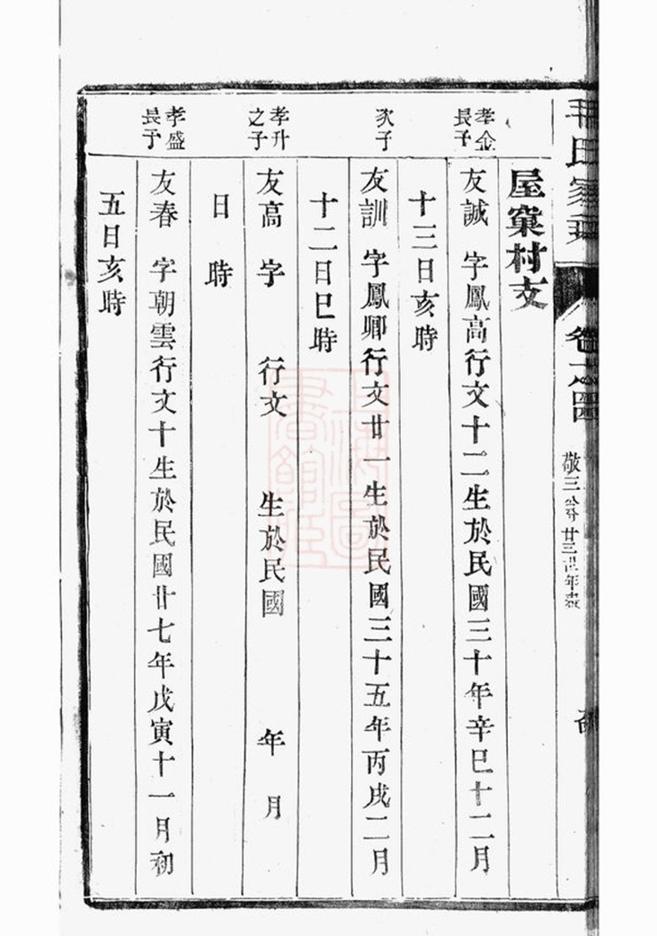 毛氏宗
卷
敬三公 廿三世年表
屋窠村支
孝金長子
友誠 字鳳高行文十二生於民國三十年辛巳十二月
十三日亥時
次子
友訓 字鳳卿行文廿一生於民國三十五年丙戌二月
十二日巳時
孝升之子
友高 字 行文 生於民國 年 月
日 時
孝盛長子
友春 字朝雲行文十生於民國廿七年戊寅十一月初
五日亥時